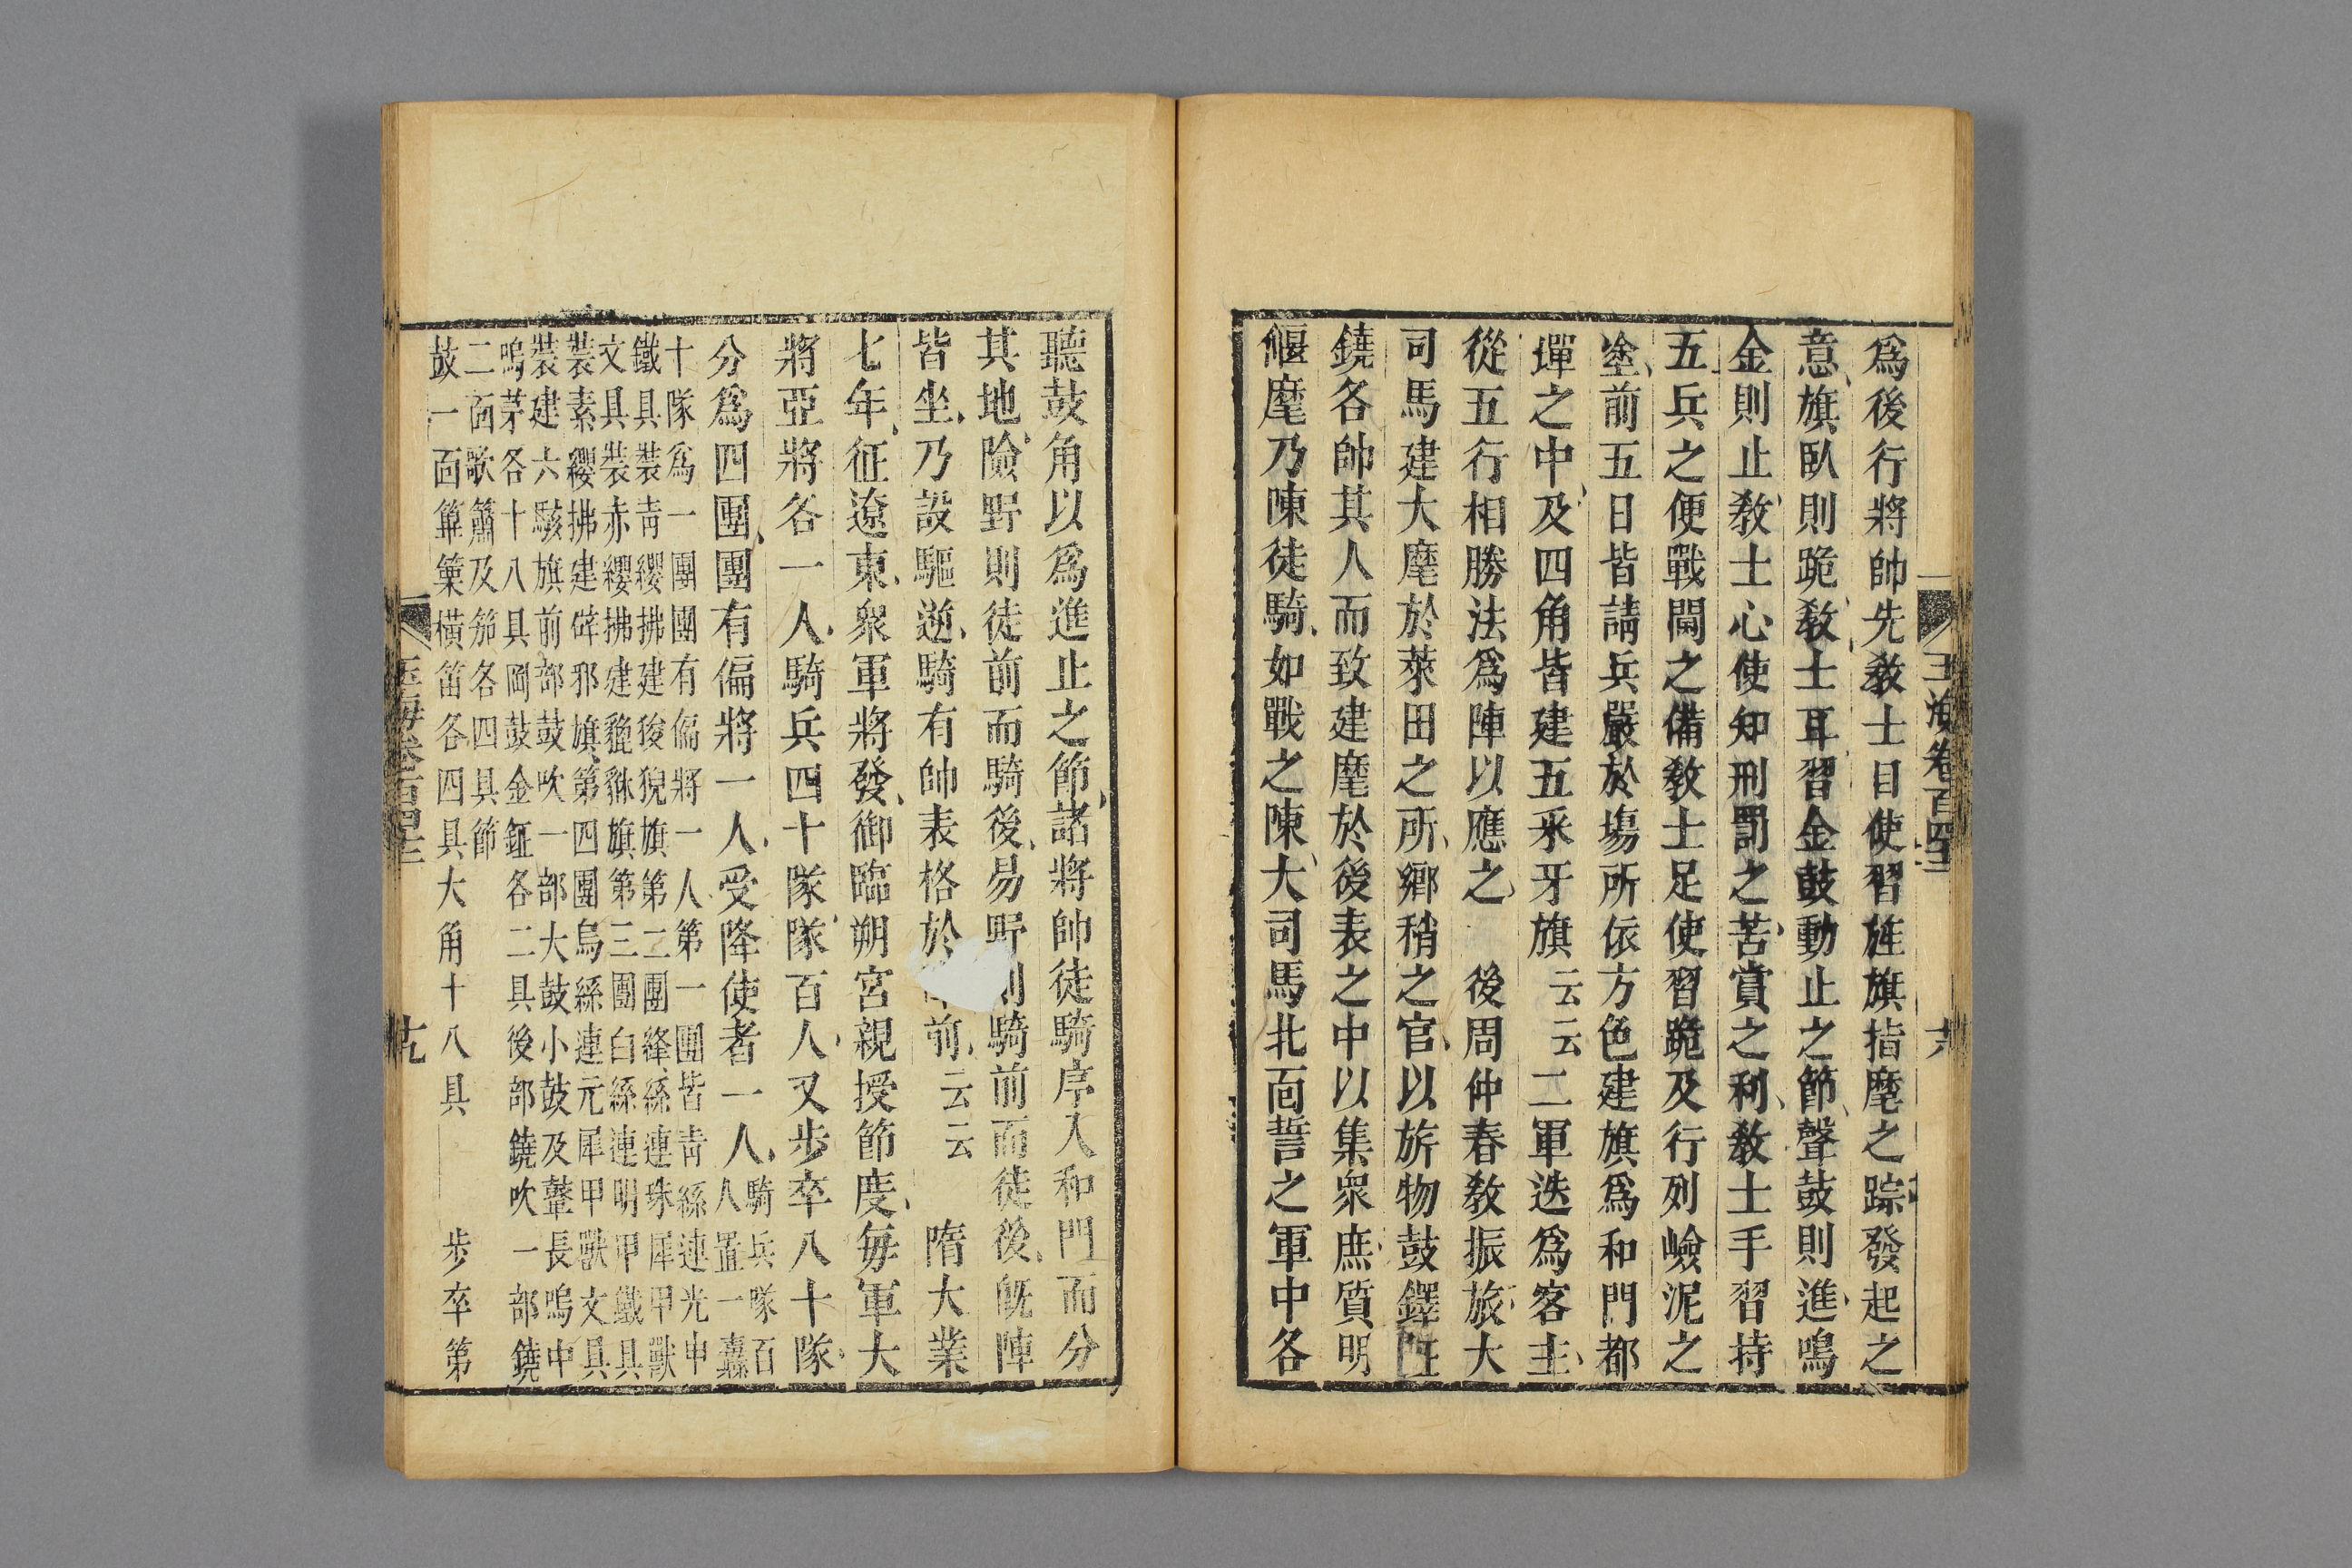 玉海卷百四十三
六
爲後行將帥先敎士目使習旌旗指麾之踪發起之
意旗臥則跪敎士耳習金鼓動止之節聲鼓則進鳴
金則止敎士心使知刑罰之苦賞之利敎士手習持
五兵之便戰鬭之備敎士足使習跪及行列嶮泥之
塗前五日皆請兵嚴於塲所依方色建旗爲和門都
墠之中及四角皆建五采牙旗云云二軍迭爲客主
從五行相勝法爲陣以應之 後周仲春敎振旅大
司馬建大麾於萊田之所鄉稍之官以旂物鼓鐸鉦
鐃各帥其人而致建麾於後表之中以集衆庶質明
偃麾乃陳徒騎如戰之陳大司馬北面誓之軍中各
聽鼓角以爲進止之節諸將帥徒騎序入和門而分
其地險野則徒前而騎後易野則騎前而徒後旣陣
皆坐乃設驅逆騎有帥表格於前云云 隋大業
七年征遼東衆軍將發御臨朔宮親授節度每軍大
將亞將各一人騎兵四十隊隊百人又步卒八十隊
分爲四團團有偏將一人受降使者一人騎兵隊百
人置一纛
十隊爲一團團有偏將一人第一團皆靑絲連光甲
鐵具裝靑纓拂建狻猊旗第二團絳絲連珠犀甲獸
文具裝赤纓拂建貔貅旗第三團白絲連明甲鐵具
裝素纓拂建辟邪旗第四團烏絲連元犀甲獸文具
裝建六駮旗前部鼓吹一部大鼓小鼓及鼙長鳴中
鳴等各十八具㧏鼓金鉦各二具後部鐃吹一部鐃
二面歌簫及笳各四具節
鼓一面篳篥橫笛各四具大角十八具 步卒第
玉海卷百四十三
十九